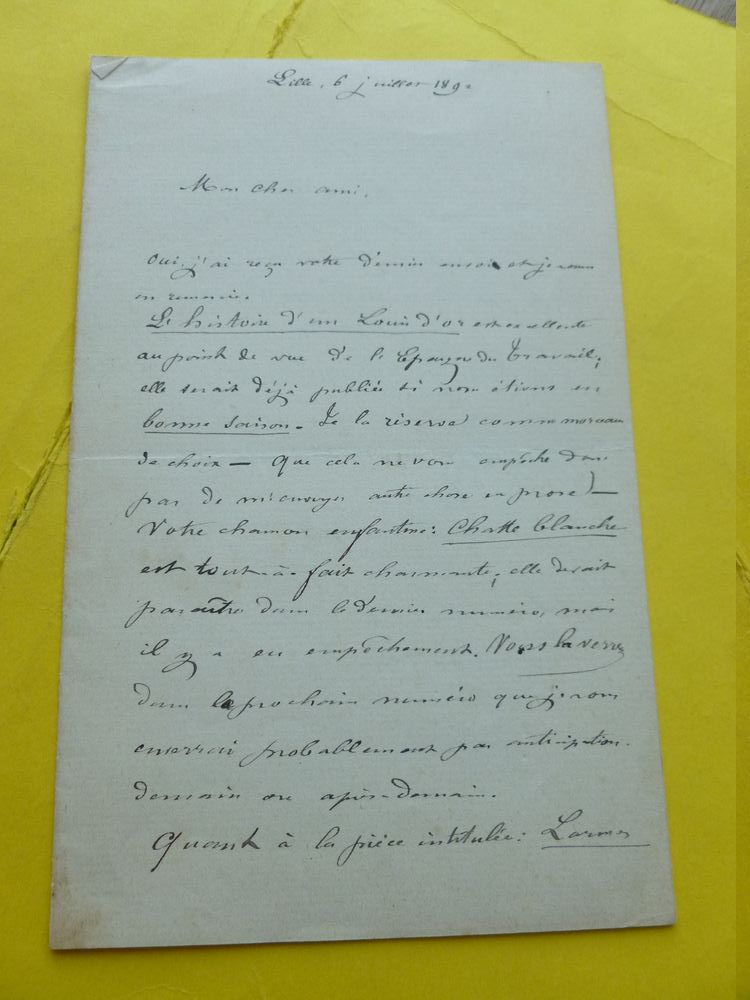 Lille, 6 juillet 189
Mon cher ami,
Oui, j'ai reçu votre dernier envoi et je vous
en remercie.
Le histoire d'un Louis d'or est excellente
au point de vue de l'Epargne du Travail;
elle serait déjà publiée si nous étions en
bonne saison. Je la réserve comme morceau
de choix — Que cela ne vous empêche donc
pas de m'envoyer autre chose en prose! —
Votre chanson enfantine: Chatte blanche
est tout-à-fait charmante; elle devait
paraître dans le dernier numéro, mais
il y a eu empêchement. Vous la verrez
dans le prochain numéro que je vous
enverrai probablement par anticipation
demain ou après-demain.
Quant à la pièce intitulée: Larmes